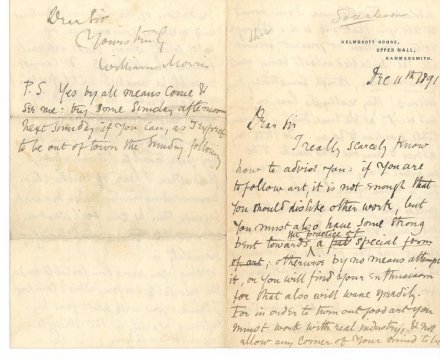 Dear Sir
Yours truly
William Morris
P.S. Yes by all means come &
see me: try some Sunday afternoon
next Sunday if you can, as I expect
to be out of town the Sunday following
KELMSCOTT HOUSE,
UPPER MALL,
HAMMERSMITH.
Dec 11th 1891
Dear Sir
I really scarcely know
how to advise you: if you are
to follow art, it is not enough that
you should dislike other work, but
you must also have some strong
bent towards the practice of a special form
of art; otherwise by no means attempt
it, or you will find your enthusiasm
for that also will wane speedily.
For in order to turn out good art you
must work with real industry, & not
allow any corner of your mind to be